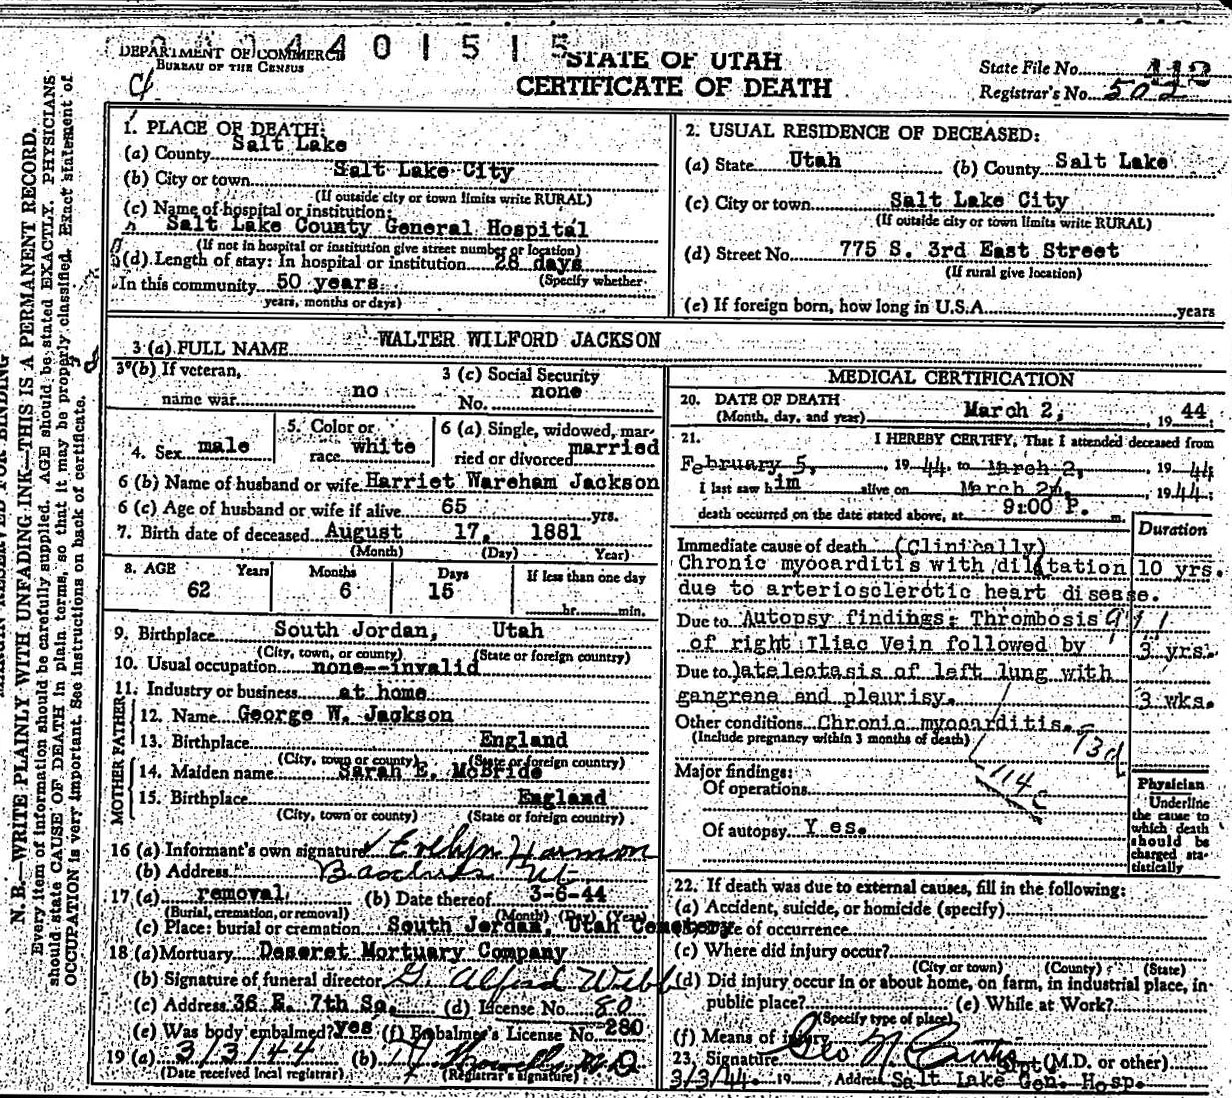 DEPARTMENT OF COMMERCE
BUREAU OF THE CENSUS
4 4 0 1 5 1 5
STATE OF UTAH
CERTIFICATE OF DEATH
State File No. 113
Registrar's No. 502
N. B.—WRITE PLAINLY WITH UNFADING INK—THIS IS A PERMANENT RECORD.
Every item of information should be carefully supplied. AGE should be stated EXACTLY. PHYSICIANS
should state CAUSE OF DEATH in plain terms, so that it may be properly classified. Exact statement of
OCCUPATION is very important. See instructions on back of certificate.
1. PLACE OF DEATH:
(a) County Salt Lake
(b) City or town Salt Lake City
(If outside city or town limits write RURAL)
(c) Name of hospital or institution:
Salt Lake County General Hospital
(If not in hospital or institution give street number or location)
(d) Length of stay: In hospital or institution 28 days
(Specify whether
In this community 50 years
years, months or days)
2. USUAL RESIDENCE OF DECEASED:
(a) State Utah (b) County Salt Lake
(c) City or town Salt Lake City
(If outside city or town limits write RURAL)
(d) Street No. 775 S. 3rd East Street
(If rural give location)
(e) If foreign born, how long in U.S.A. years
3 (a) FULL NAME WALTER WILFORD JACKSON
3 (b) If veteran, name war no
3 (c) Social Security No. none
4. Sex male
5. Color or race white
6 (a) Single, widowed, married or divorced married
6 (b) Name of husband or wife Harriet Wareham Jackson
6 (c) Age of husband or wife if alive 65 yrs.
7. Birth date of deceased August 17, 1881
(Month) (Day) Year)
8. AGE Years Months Days If less than one day
62 6 15 hr. min.
9. Birthplace South Jordan, Utah
(City, town, or county) (State or foreign country)
10. Usual occupation none--invalid
11. Industry or business at home
FATHER
12. Name George W. Jackson
13. Birthplace England
(City, town or county) (State or foreign country)
MOTHER
14. Maiden name Sarah E. McBride
15. Birthplace England
(City, town or county) (State or foreign country)
16 (a) Informant's own signature Evelyn Harmon
(b) Address Ut
17 (a) removal (b) Date thereof 3-6-44
(Burial, cremation, or removal) (Month) (Day) (Year)
(c) Place: burial or cremation South Jordan, Utah Cemetery
18 (a) Mortuary Deseret Mortuary Company
(b) Signature of funeral director G. Alfred Webb
(c) Address 36 E. 7th So. (d) License No. 80
(e) Was body embalmed? yes (f) Embalmer's License No. 280
19 (a) 3/3/44 (b) M D
(Date received local registrar) (Registrar's signature)
MEDICAL CERTIFICATION
20. DATE OF DEATH
(Month, day, and year) March 2, 19 44
21. I HEREBY CERTIFY, That I attended deceased from
February 5, 19 44 to March 2, 19 44
I last saw him alive on March 2, 19 44
death occurred on the date stated above, at 9:00 P. m.
Duration
Immediate cause of death (Clinically)
Chronic myocarditis with dilatation 10 yrs.
due to arteriosclerotic heart disease.
Due to Autopsy findings: Thrombosis
of right Iliac Vein followed by 3 yrs.
Due to ateleotasis of left lung with
gangrene and pleurisy. 3 wks.
Other conditions Chronic myocarditis.
(Include pregnancy within 3 months of death)
93d
114c
Major findings:
Of operations
Of autopsy Yes.
Physician
Underline the cause to which death should be charged statistically
22. If death was due to external causes, fill in the following:
(a) Accident, suicide, or homicide (specify)
of occurrence
(c) Where did injury occur?
(City or town) (County) (State)
(d) Did injury occur in or about home, on farm, in industrial place, in
public place? (e) While at Work?
(Specify type of place)
(f) Means of injury
23. Signature Geo N Curtis Supt (M.D. or other)
3/3/44 19 Address Salt Lake Gen. Hosp.